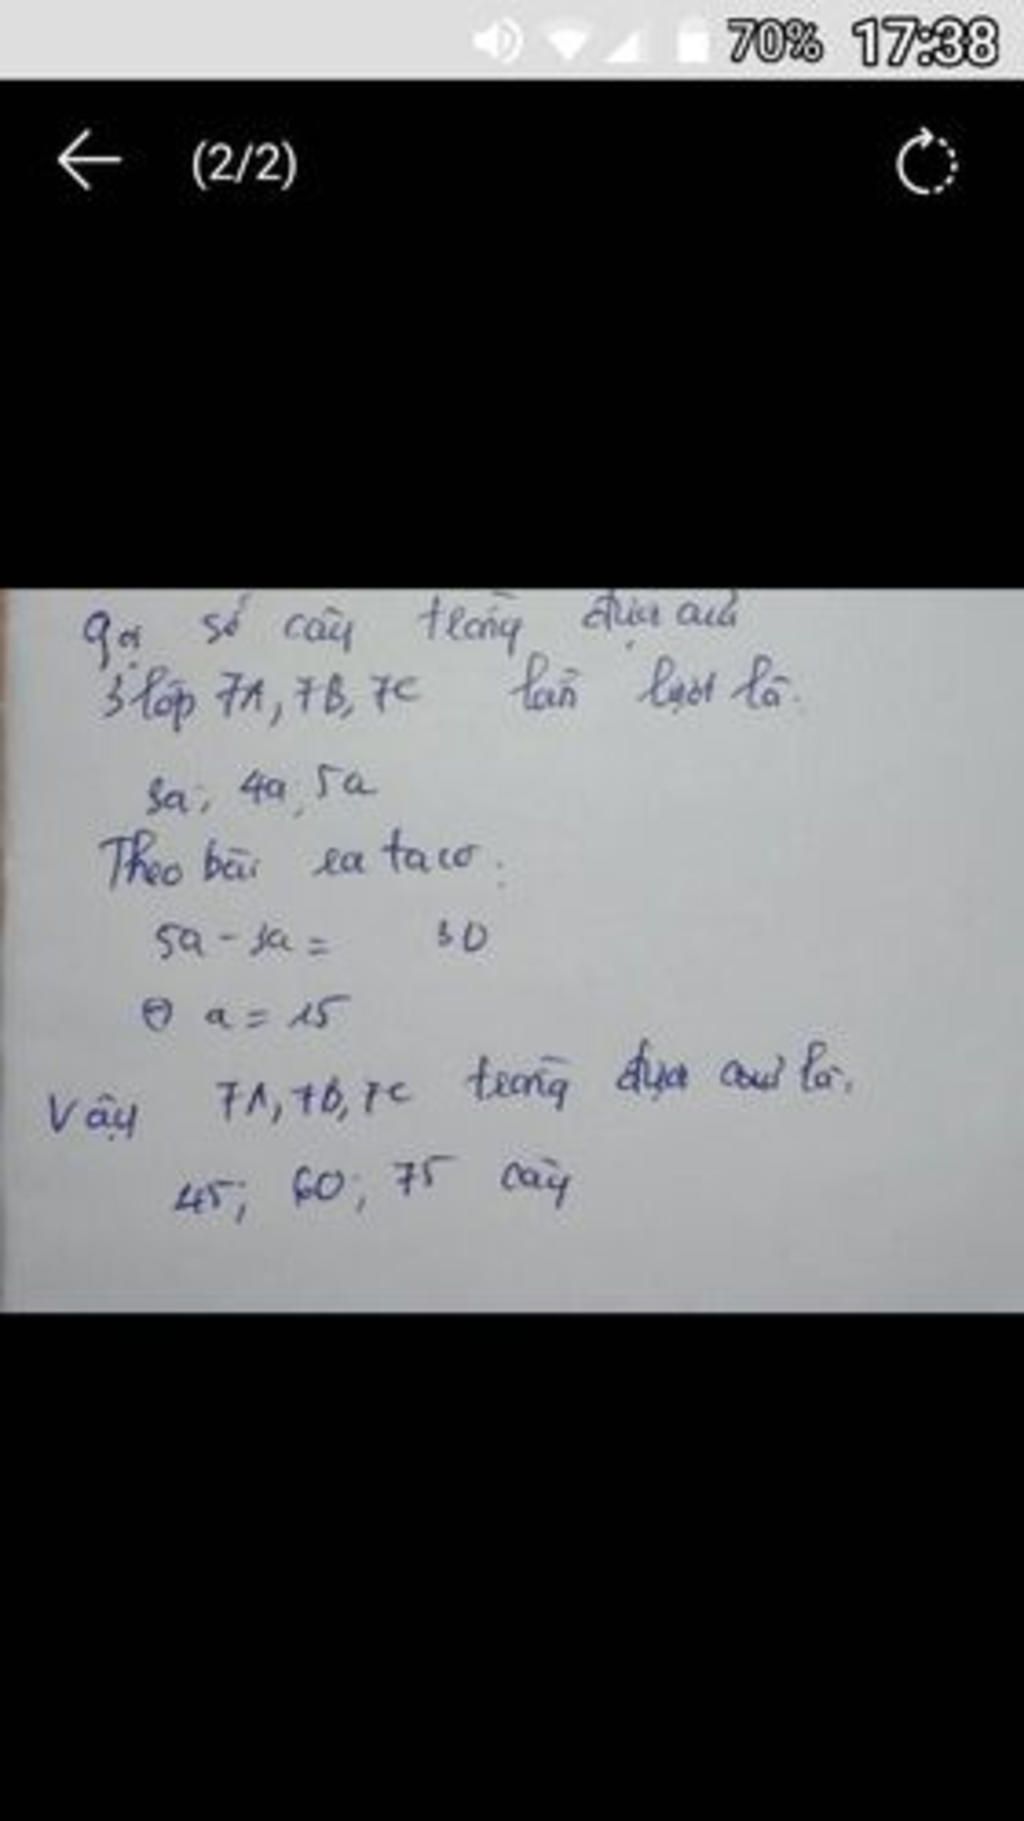 70% 17:38
(2/2)
gọi số cây trồng được của
3 lớp 7A, 7B, 7C lần lượt là.
3a; 4a; 5a
Theo bài ra ta có:
5a - 3a = 30
a = 15
Vậy 7A, 7B, 7C trồng được cây là.
45; 60; 75 cây